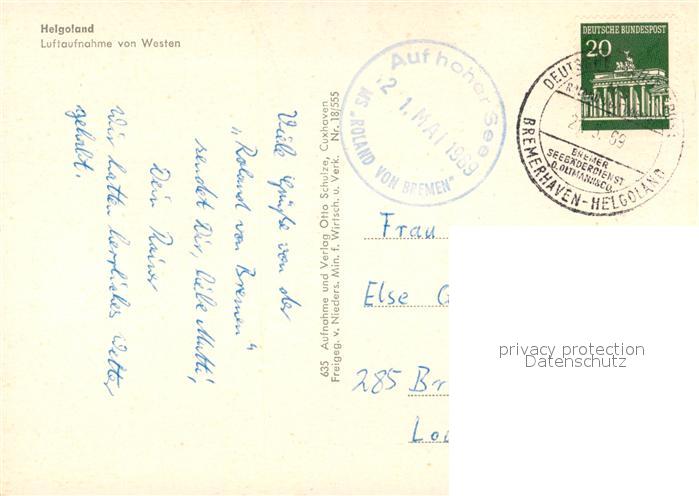 Helgoland
Luftaufnahme von Westen
Viele Grüße von der
„Roland von Bremen"
sendet Dir, liebe Mutti,
Dein Rainer
Wir hatten herrliches Wetter
gehabt.
635 Aufnahme und Verlag Otto Schulze, Cuxhaven
Freigeg. v. Nieders. Min. f. Wirtsch. u. Verk. Nr. 18/555
Auf hoher See
21. MAI 1969
MS „ROLAND VON BREMEN"
DEUTSCHE BUNDESPOST
20
DEUTSCHE
69
BREMER
SEEBÄDERDIENST
BREMERHAVEN-HELGOLAND
Frau
Else G
285 Br
privacy protection
Datenschutz